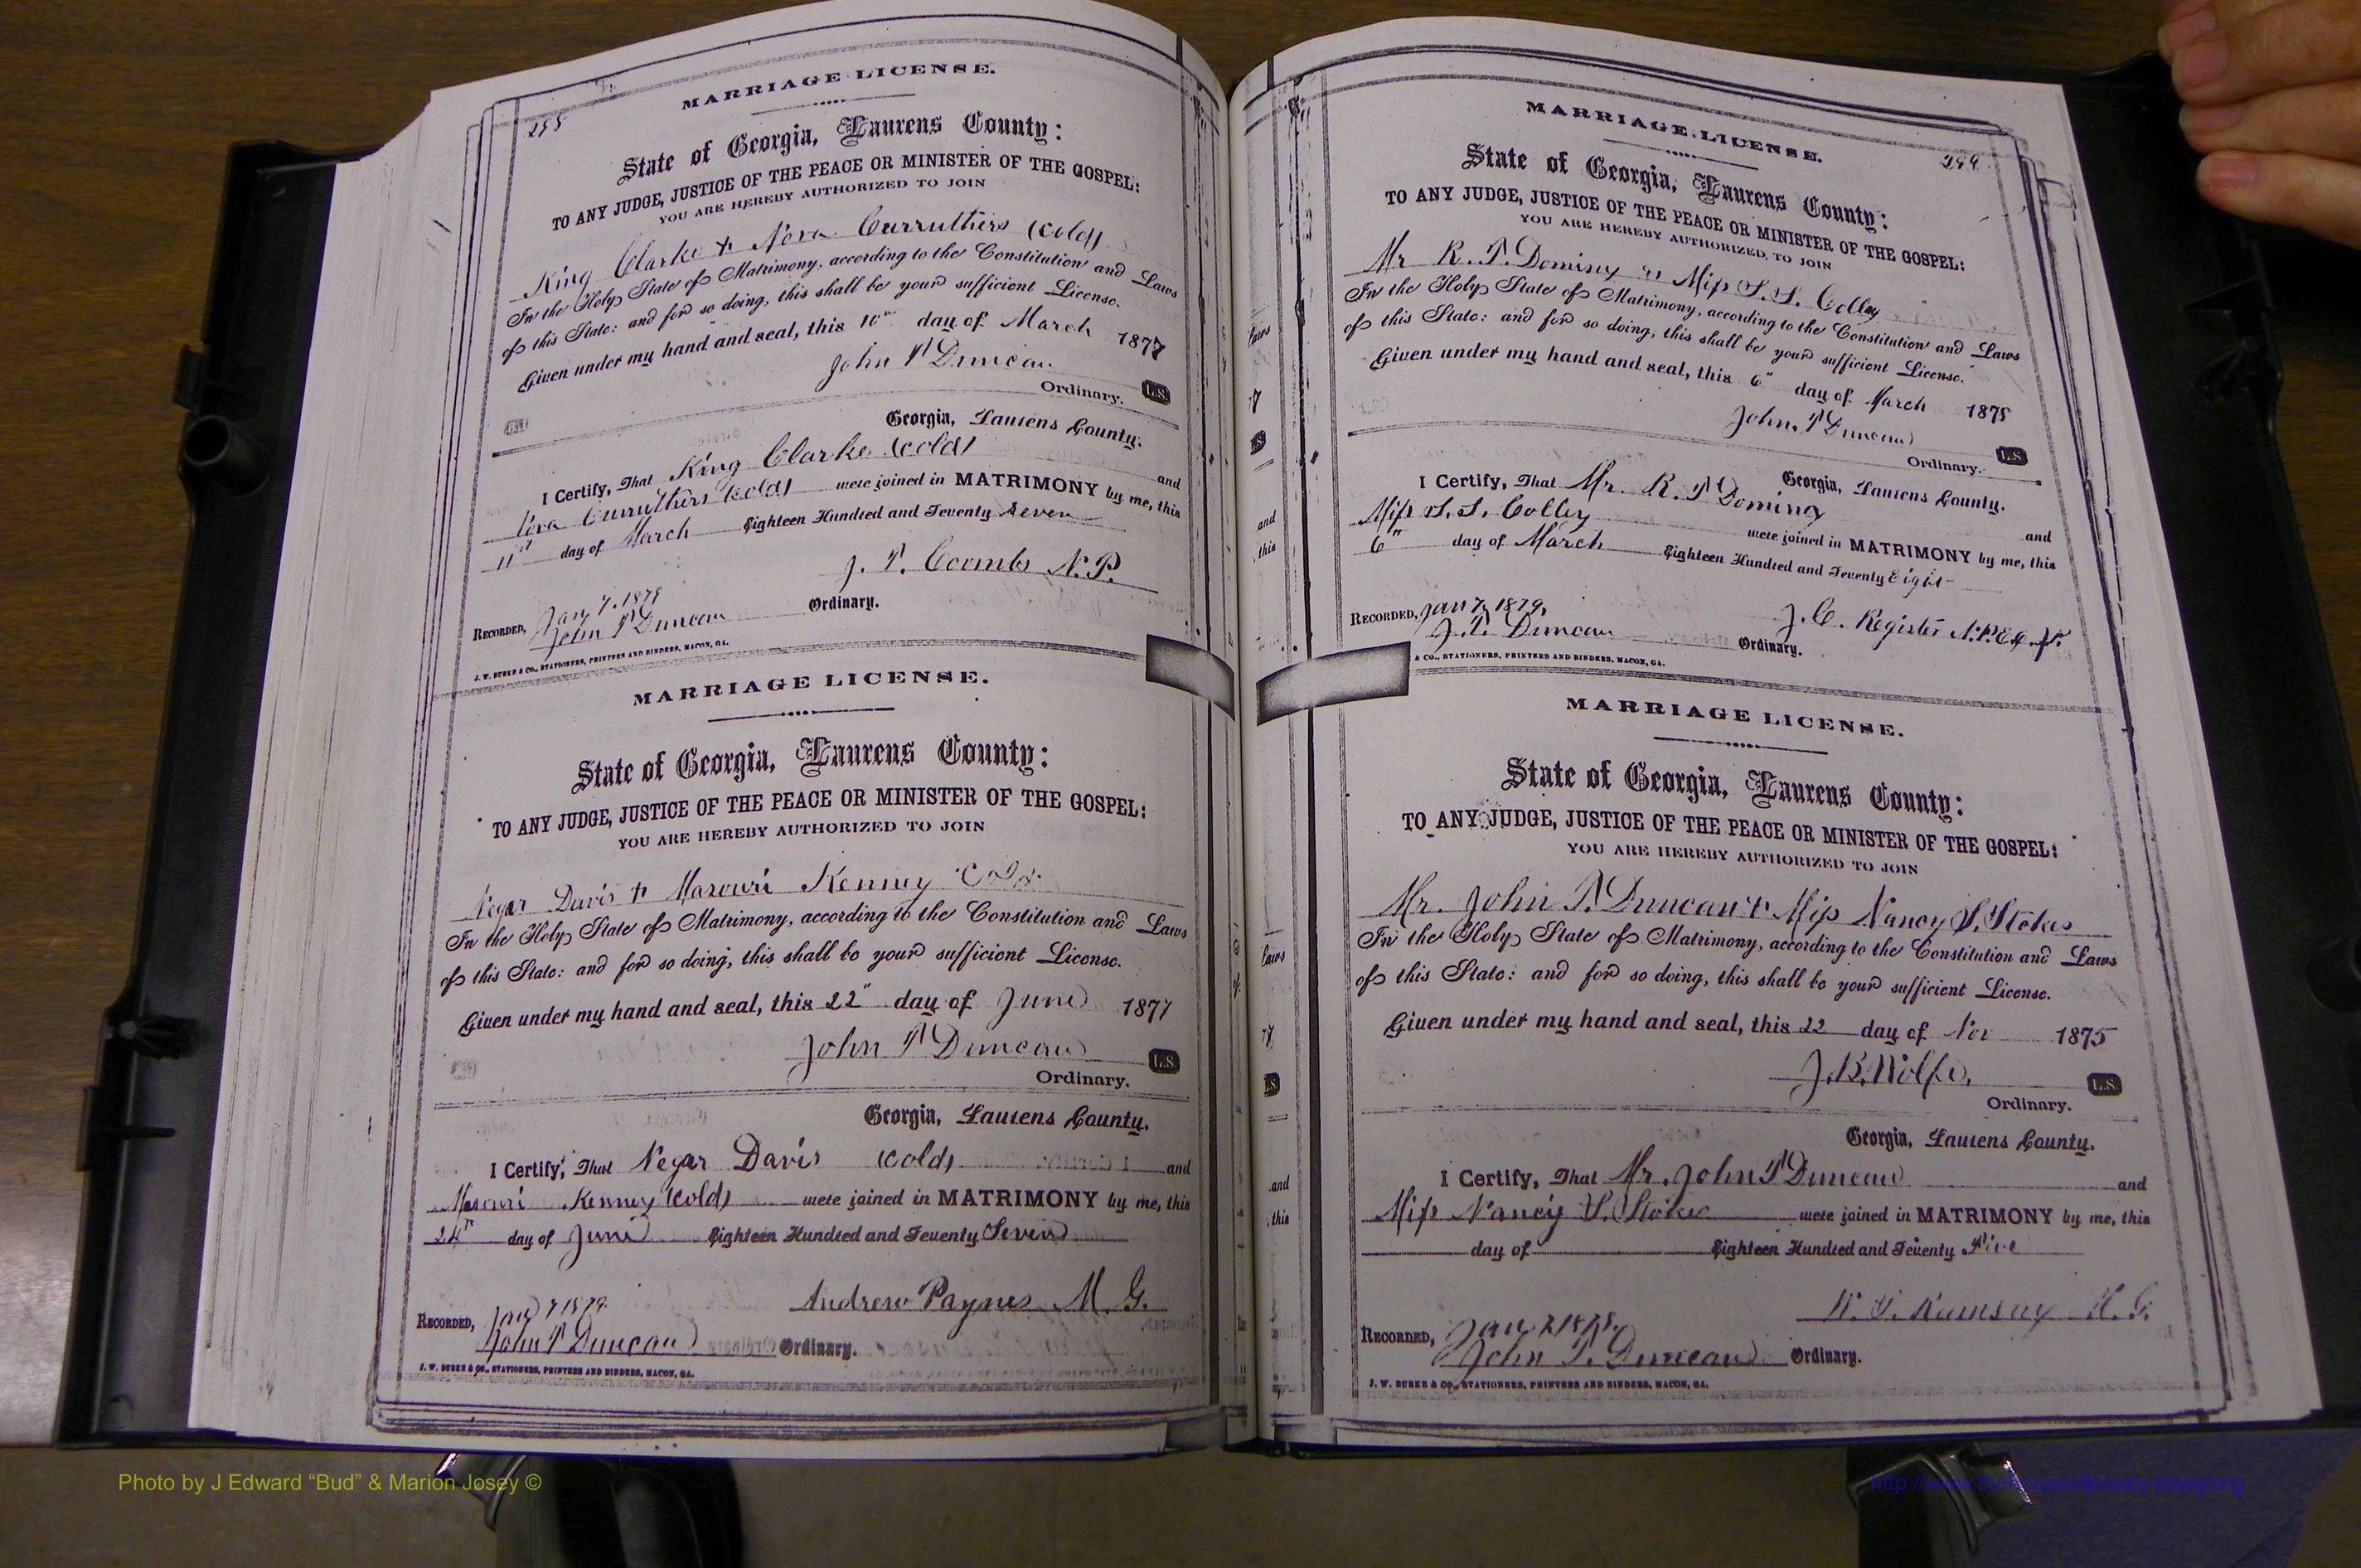 MARRIAGE LICENSE.
State of Georgia, Laurens County:
TO ANY JUDGE, JUSTICE OF THE PEACE OR MINISTER OF THE GOSPEL:
YOU ARE HEREBY AUTHORIZED TO JOIN
King Clarke & Nora Curruthers (Cold)
In the Holy State of Matrimony, according to the Constitution and Laws
of this State: and for so doing, this shall be your sufficient License.
Given under my hand and seal, this 10th day of March 1877
John T Duncan
Ordinary. L.S.
Georgia, Laurens County.
I Certify, That King Clarke (Cold) and
Curruthers (Cold) were joined in MATRIMONY by me, this
11th day of March Eighteen Hundred and Seventy Seven
J. T. Coombs N.P.
RECORDED, Jan 7. 1879
John T Duncan Ordinary.
J. W. BURKE & CO., STATIONERS, PRINTERS AND BINDERS, MACON, GA.
MARRIAGE LICENSE.
State of Georgia, Laurens County:
TO ANY JUDGE, JUSTICE OF THE PEACE OR MINISTER OF THE GOSPEL:
YOU ARE HEREBY AUTHORIZED TO JOIN
Negar Davis & Kenney
In the Holy State of Matrimony, according to the Constitution and Laws
of this State: and for so doing, this shall be your sufficient License.
Given under my hand and seal, this 22" day of June 1877
John T Duncan L.S.
Ordinary.
Georgia, Laurens County.
I Certify, That Negar Davis (Cold) and
Kenney (Cold) were joined in MATRIMONY by me, this
24th day of June Eighteen Hundred and Seventy Seven
Andrew Paynes M. G.
RECORDED, Jan 7 1879
John T Duncan Ordinary.
J. W. BURKE & CO., STATIONERS, PRINTERS AND BINDERS, MACON, GA.
MARRIAGE LICENSE. 299
State of Georgia, Laurens County:
TO ANY JUDGE, JUSTICE OF THE PEACE OR MINISTER OF THE GOSPEL:
YOU ARE HEREBY AUTHORIZED TO JOIN
Mr R. T. Dominy & Miss S. S. Colley
In the Holy State of Matrimony, according to the Constitution and Laws
of this State: and for so doing, this shall be your sufficient License.
Given under my hand and seal, this 6" day of March 1878
John T Duncan L.S.
Ordinary.
Georgia, Laurens County.
I Certify, That Mr. R. T Dominy and
Miss S. S. Colley were joined in MATRIMONY by me, this
6" day of March Eighteen Hundred and Seventy Eight
J. C. Register N.P. Ex. J.P.
RECORDED, Jan 7, 1879,
J. T. Duncan Ordinary.
& CO., STATIONERS, PRINTERS AND BINDERS, MACON, GA.
MARRIAGE LICENSE.
State of Georgia, Laurens County:
TO ANY JUDGE, JUSTICE OF THE PEACE OR MINISTER OF THE GOSPEL:
YOU ARE HEREBY AUTHORIZED TO JOIN
Mr. John T. Duncan & Miss Nancy S. Stokes
In the Holy State of Matrimony, according to the Constitution and Laws
of this State: and for so doing, this shall be your sufficient License.
Given under my hand and seal, this 22 day of Nov 1875
J. B. Wolfe. L.S.
Ordinary.
Georgia, Laurens County.
I Certify, That Mr. John T Duncan and
Miss Nancy S. Stokes were joined in MATRIMONY by me, this
day of Eighteen Hundred and Seventy Five
W. S. Ramsay M. G.
RECORDED, Jan 7 187
John T. Duncan Ordinary.
J. W. BURKE & CO., STATIONERS, PRINTERS AND BINDERS, MACON, GA.
Photo by J Edward “Bud” & Marion Josey ©
http://www.thehouseofjossey-josey.org